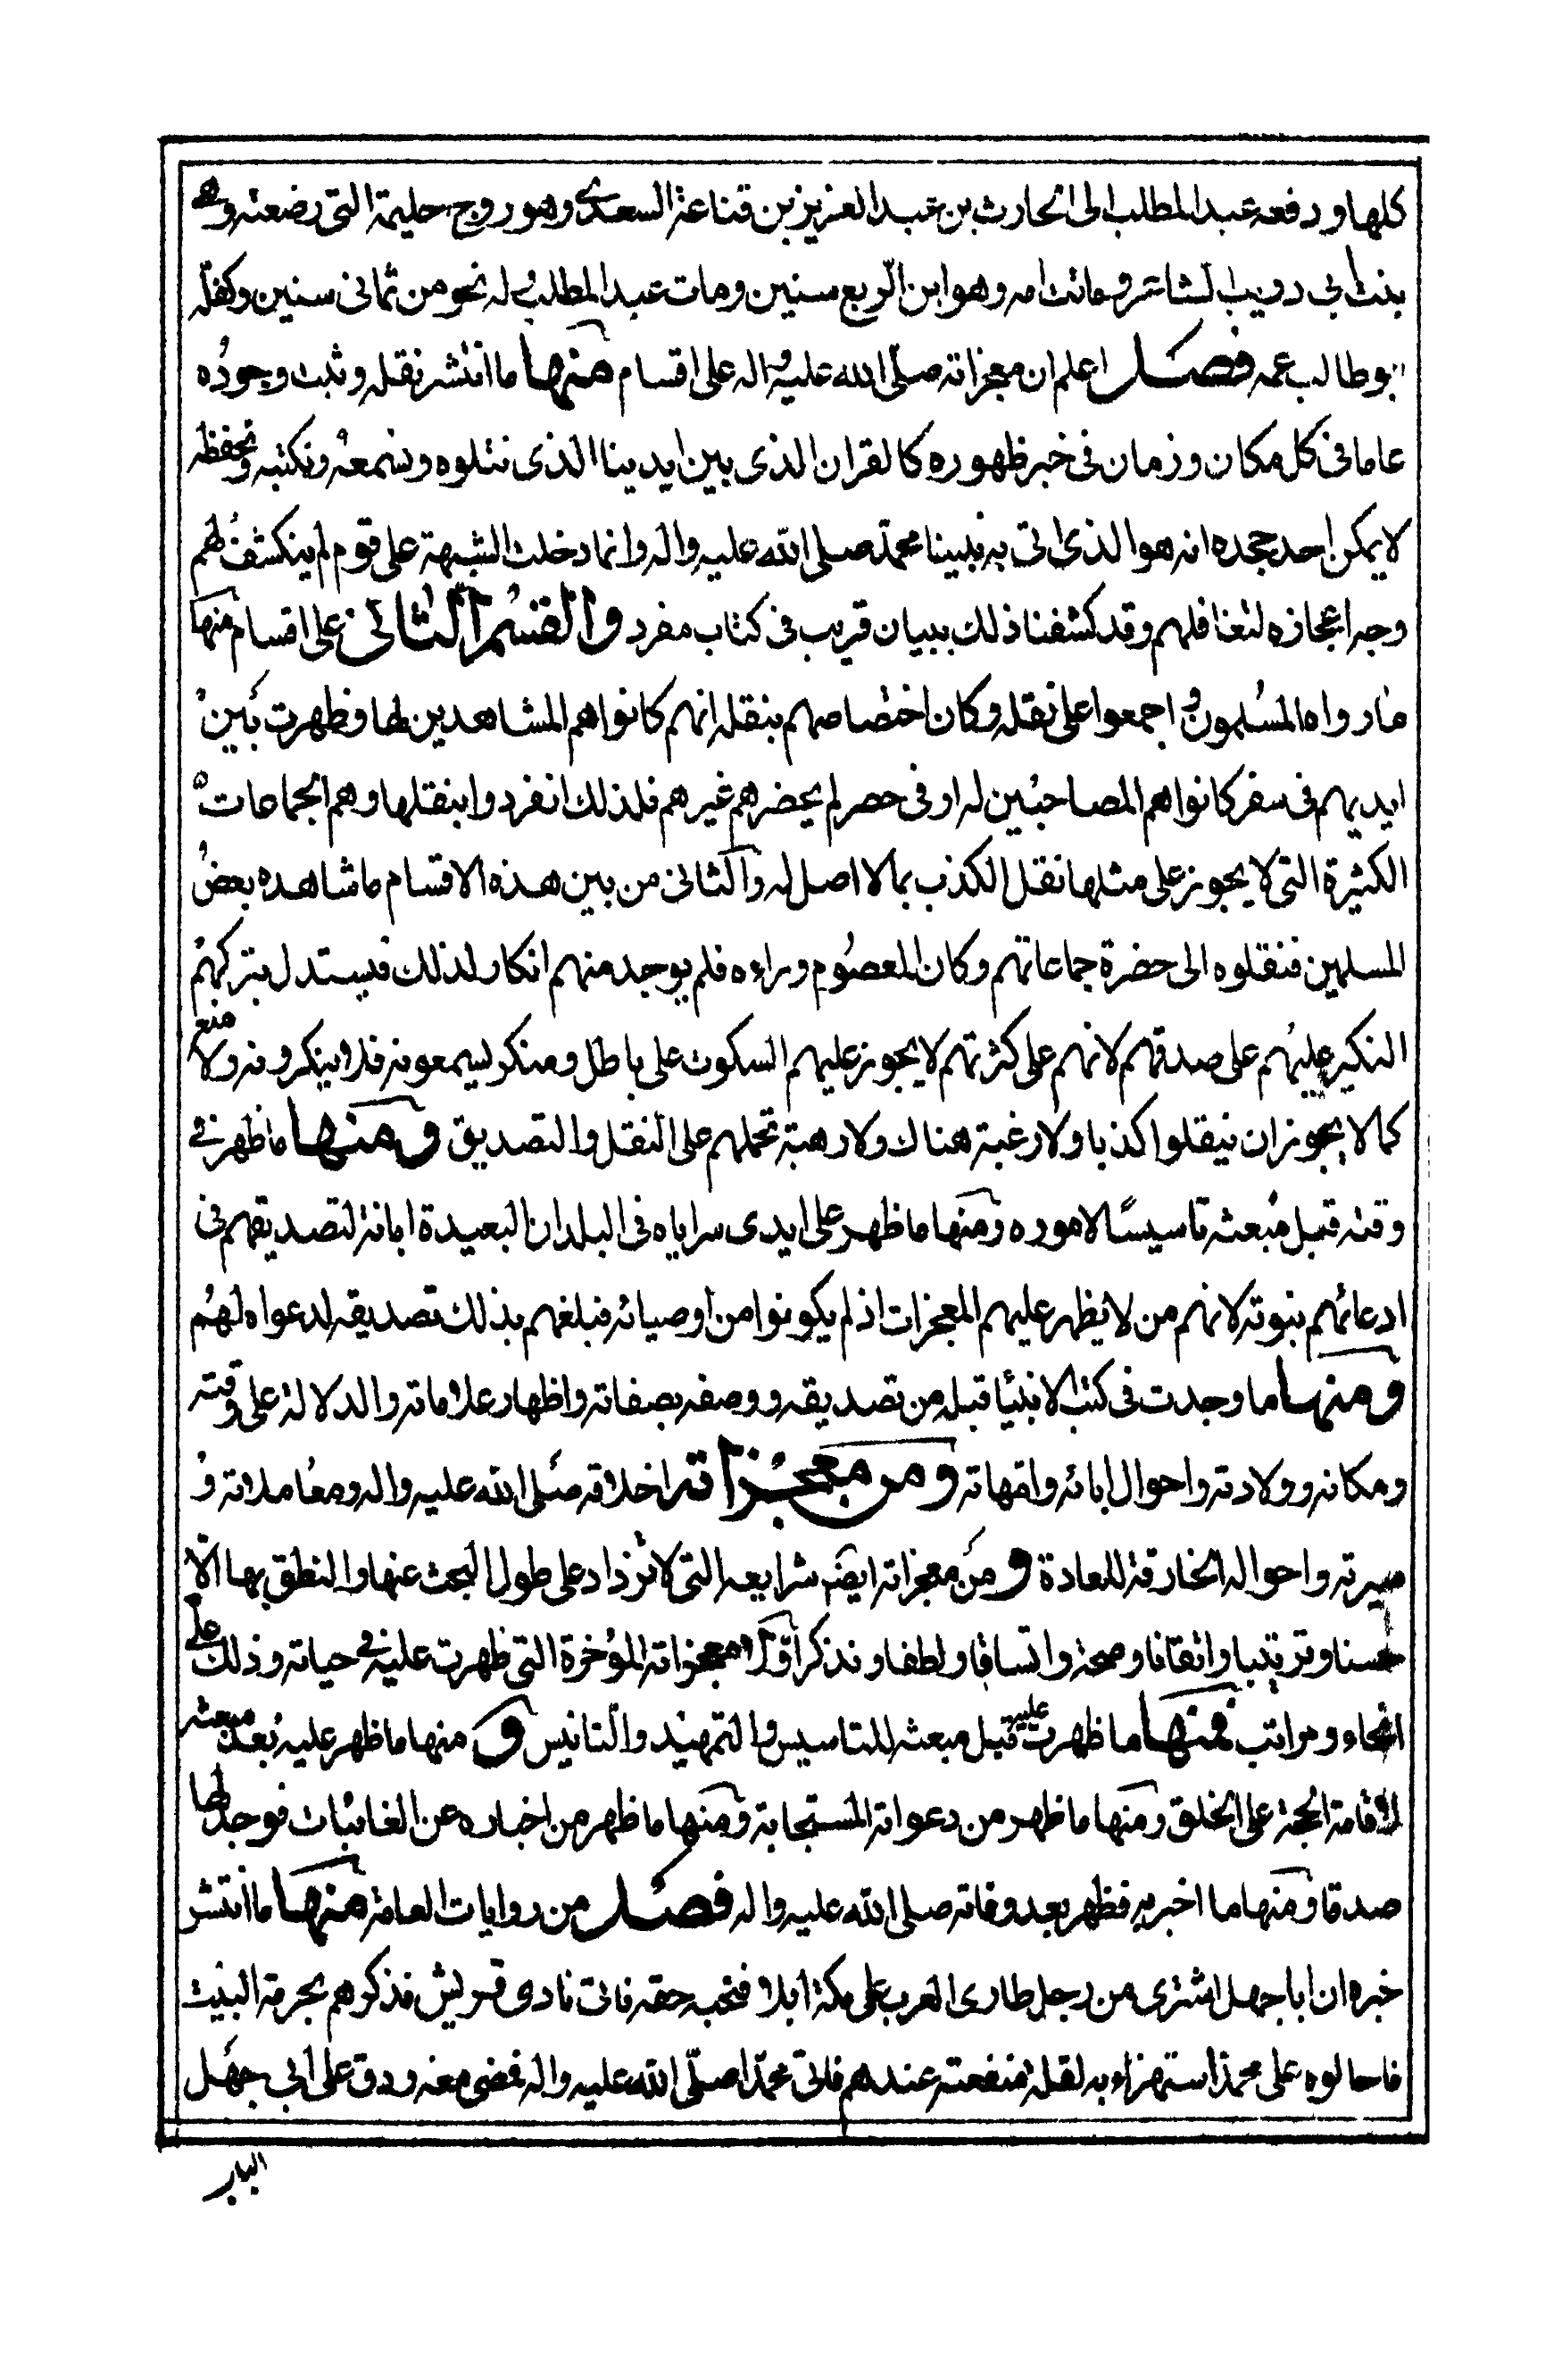 كلها ودفعه عبد المطلب الى الحارث بن عبد العزيز بن قناعة السعدي وهو زوج حليمة التي رضعته وهي
بنت ابي ذويب الشاعر وماتت امه وهو ابن اربع سنين ومات عبد المطلب وله نحو من ثماني سنين وكفله
ابو طالب عمه فصل اعلم ان معجزاته صلى الله عليه واله على اقسام منها ما انتشر نقله وثبت وجوده
عاما في كل مكان وزمان في خبر ظهوره كالقران الذي بين ايدينا الذى نتلوه ونسمعه ونكتبه ونحفظه
لا يمكن احد جحده انه هو الذى اتى به نبينا محمد صلى الله عليه واله وانما دخلت الشبهة على قوم لم ينكشف لهم
وجه اعجازه لتغافلهم وقد كشفنا ذلك ببيان قريب في كتاب مفرد والقسم الثاني على اقسام منها
ما رواه المسلمون واجمعوا على نقله وكان اختصاصهم بنقله انهم كانوا هم المشاهدين لها وظهرت بين
ايديهم في سفر كانوا هم المصاحبين له او في حصر لم يحضرهم غيرهم فلذلك انفردوا بنقلها وهم الجماعات
الكثيرة التي لا يجوز على مثلها نقل الكذب بما لا اصل له والثاني من بين هذه الاقسام ما شاهده بعض
المسلمين فنقلوه الى حضرة جماعاتهم وكان المعصوم وراءه فلم يوجد منهم انكار لذلك فيستدل بتركهم
النكير عليهم على صدقهم لانهم على كثرتهم لا يجوز عليهم السكوت على باطل ومنكر يسمعونه فلا ينكرونه ولا منع
كما لا يجوز ان ينقلوا كذبا ولا رغبة هناك ولا رهبة تحملهم على النقل والتصديق ومنها ما ظهر في
وقته قبل مبعثه تاسيسا لاموره ومنها ما ظهر على ايدى سراياه في البلدان البعيدة ابانة لتصديقهم في
ادعائهم بنبوته لانهم من لا يظهر عليهم المعجزات اذ لم يكونوا من اوصيائه فبلغهم بذلك تصديقه لدعواه لهم
ومنها ما وجدت في كتب الانبيا قبله من تصديقه ووصفه بصفاته واظهار علاماته والدلالة على وقته
ومكانه وولادته واحوال ابائه وامهاته ومن معجزاته اخلاقه صلى الله عليه واله ومعاملاته و
سيرته واحواله الخارقة للعادة ومن معجزاته ايضا شرايعه التي لا تزداد على طول البحث عنها والنطق بها الا
حسنا وترتيبا واتقانا وصحة واتساقا ولطفا ونذكر اولا معجزاته الموخرة التي ظهرت عليه في حياته وذلك على
انحاء ومراتب فمنها ما ظهرت عليه قبل مبعثه للتاسيس والتمهيد والتانيس و منها ما ظهر عليه بعد مبعثه
لاقامة الحجة على الخلق ومنها ما ظهر من دعواته المستجابة ومنها ما ظهر من اخباره عن الغائبات فوجد لها
صدقا ومنها ما اخبر به فظهر بعد وفاته صلى الله عليه واله فصل من روايات العامة منها ما انتشر
خبره ان ابا جهل اشترى من رجل طارى العرب على مكة ابلا فنحبه حقه فاتى نادى قريش فذكرهم بحرمة البيت
فاحالوه على محمد استهزاء به لقلة منفعته عندهم فاتى محمدا صلى الله عليه واله فمضى معه ودق على ابي جهل
الباب